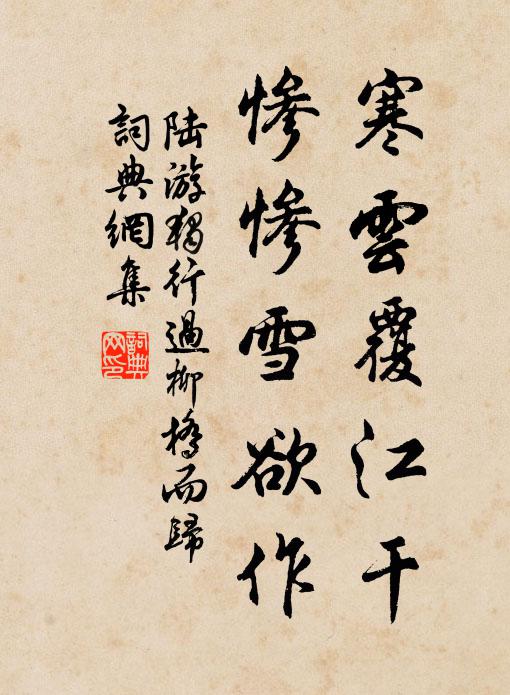 寒雲覆江干
慘慘雪欲作
陆游獨行過柳橋而歸
詞典網集
詞典網印